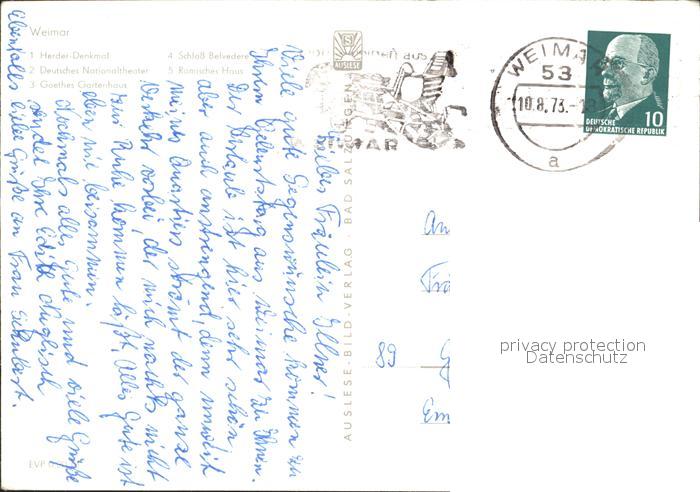 Weimar
1 Herder-Denkmal
2 Deutsches Nationaltheater
3 Goethes Gartenhaus
4 Schloß Belvedere
5 Römisches Haus
AUSLESE
AUSLESE-BILD-VERLAG · BAD SALZUNGEN
EVP
WEIMAR
53
10.8.73.-18
a
WEIMAR
DEUTSCHE
DEMOKRATISCHE REPUBLIK
10
Liebes Fräulein Ellner!
Viele gute Segenswünsche kommen zu
Ihrem Geburtstag aus Weimar zu Ihnen.
Der Urlaub ist hier sehr schön
aber auch anstrengend, denn unweit
meines Quartiers strömt der ganze
Verkehr vorbei, der mich nachts nicht
zur Ruhe kommen läßt. Alles Gute ist
eben nie beisammen.
Nochmals alles Gute und viele Grüße
sendet Ihre Edith
Ebenfalls liebe Grüße an Frau
An
Frä
89 G
Em
privacy protection
Datenschutz